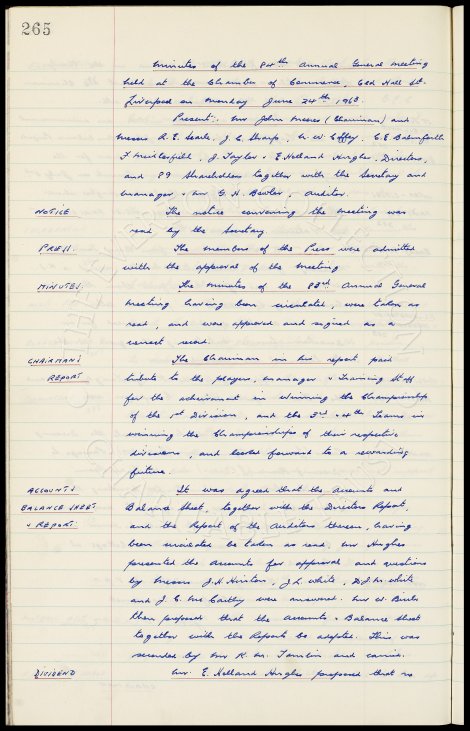 265
Minutes of the 84th Annual General Meeting
held at the Chamber of Commerce, Old Hall St.
Liverpool on Monday June 24th 1963.
Present: Mr John Moores (Chairman) and
Messrs R.E. Searle, J.C. Sharp, C.E. Balmforth
F. Micklesfield, J. Taylor & E. Holland Hughes, Directors,
and 89 Shareholders together with the Secretary and
Manager & Mr G.H. Bowler, Auditor.
NOTICE The notice convening the meeting was
read by the Secretary.
PRESS. The members of the Press were admitted
with the approval of the meeting
MINUTES. The minutes of the 83rd Annual General
Meeting having been circulated, were taken as
read, and were approved and signed as a
correct record.
CHAIRMAN'S The Chairman in his report paid
REPORT tribute to the players, manager & Training Staff
for the achievement in winning the Championship
of the 1st Division, and the 3rd & 4th Teams in
winning the Championships of their respective
divisions, and looked forward to a rewarding
future.
ACCOUNTS It was agreed that the Accounts and
BALANCE SHEET Balance Sheet, together with the Directors Report,
& REPORT. and the Report of the Auditors thereon, having
been circulated be taken as read. Mr Hughes
presented the accounts for approval and questions
by Messrs J.H. Hinton, J.L. White, D.S.M. White
and J.C. McCarthy were answered. Mr W. Birch
then proposed that the accounts & Balance Sheet
together with the Reports be adopted. This was
seconded by Mr R.M. Tomlin and carried.
DIVIDEND Mr. E. Holland Hughes proposed that no